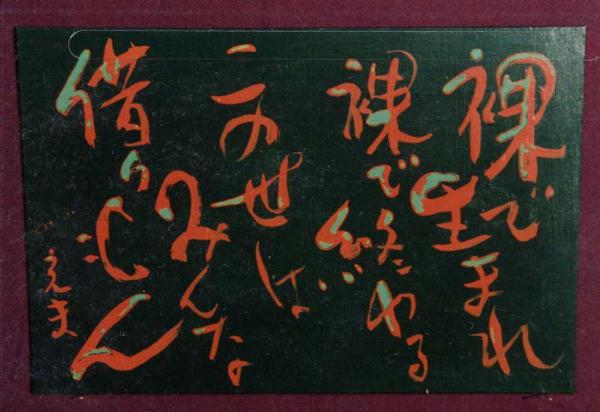 裸で生まれ
裸で終わる
この世は
みんな
借りもん
えま